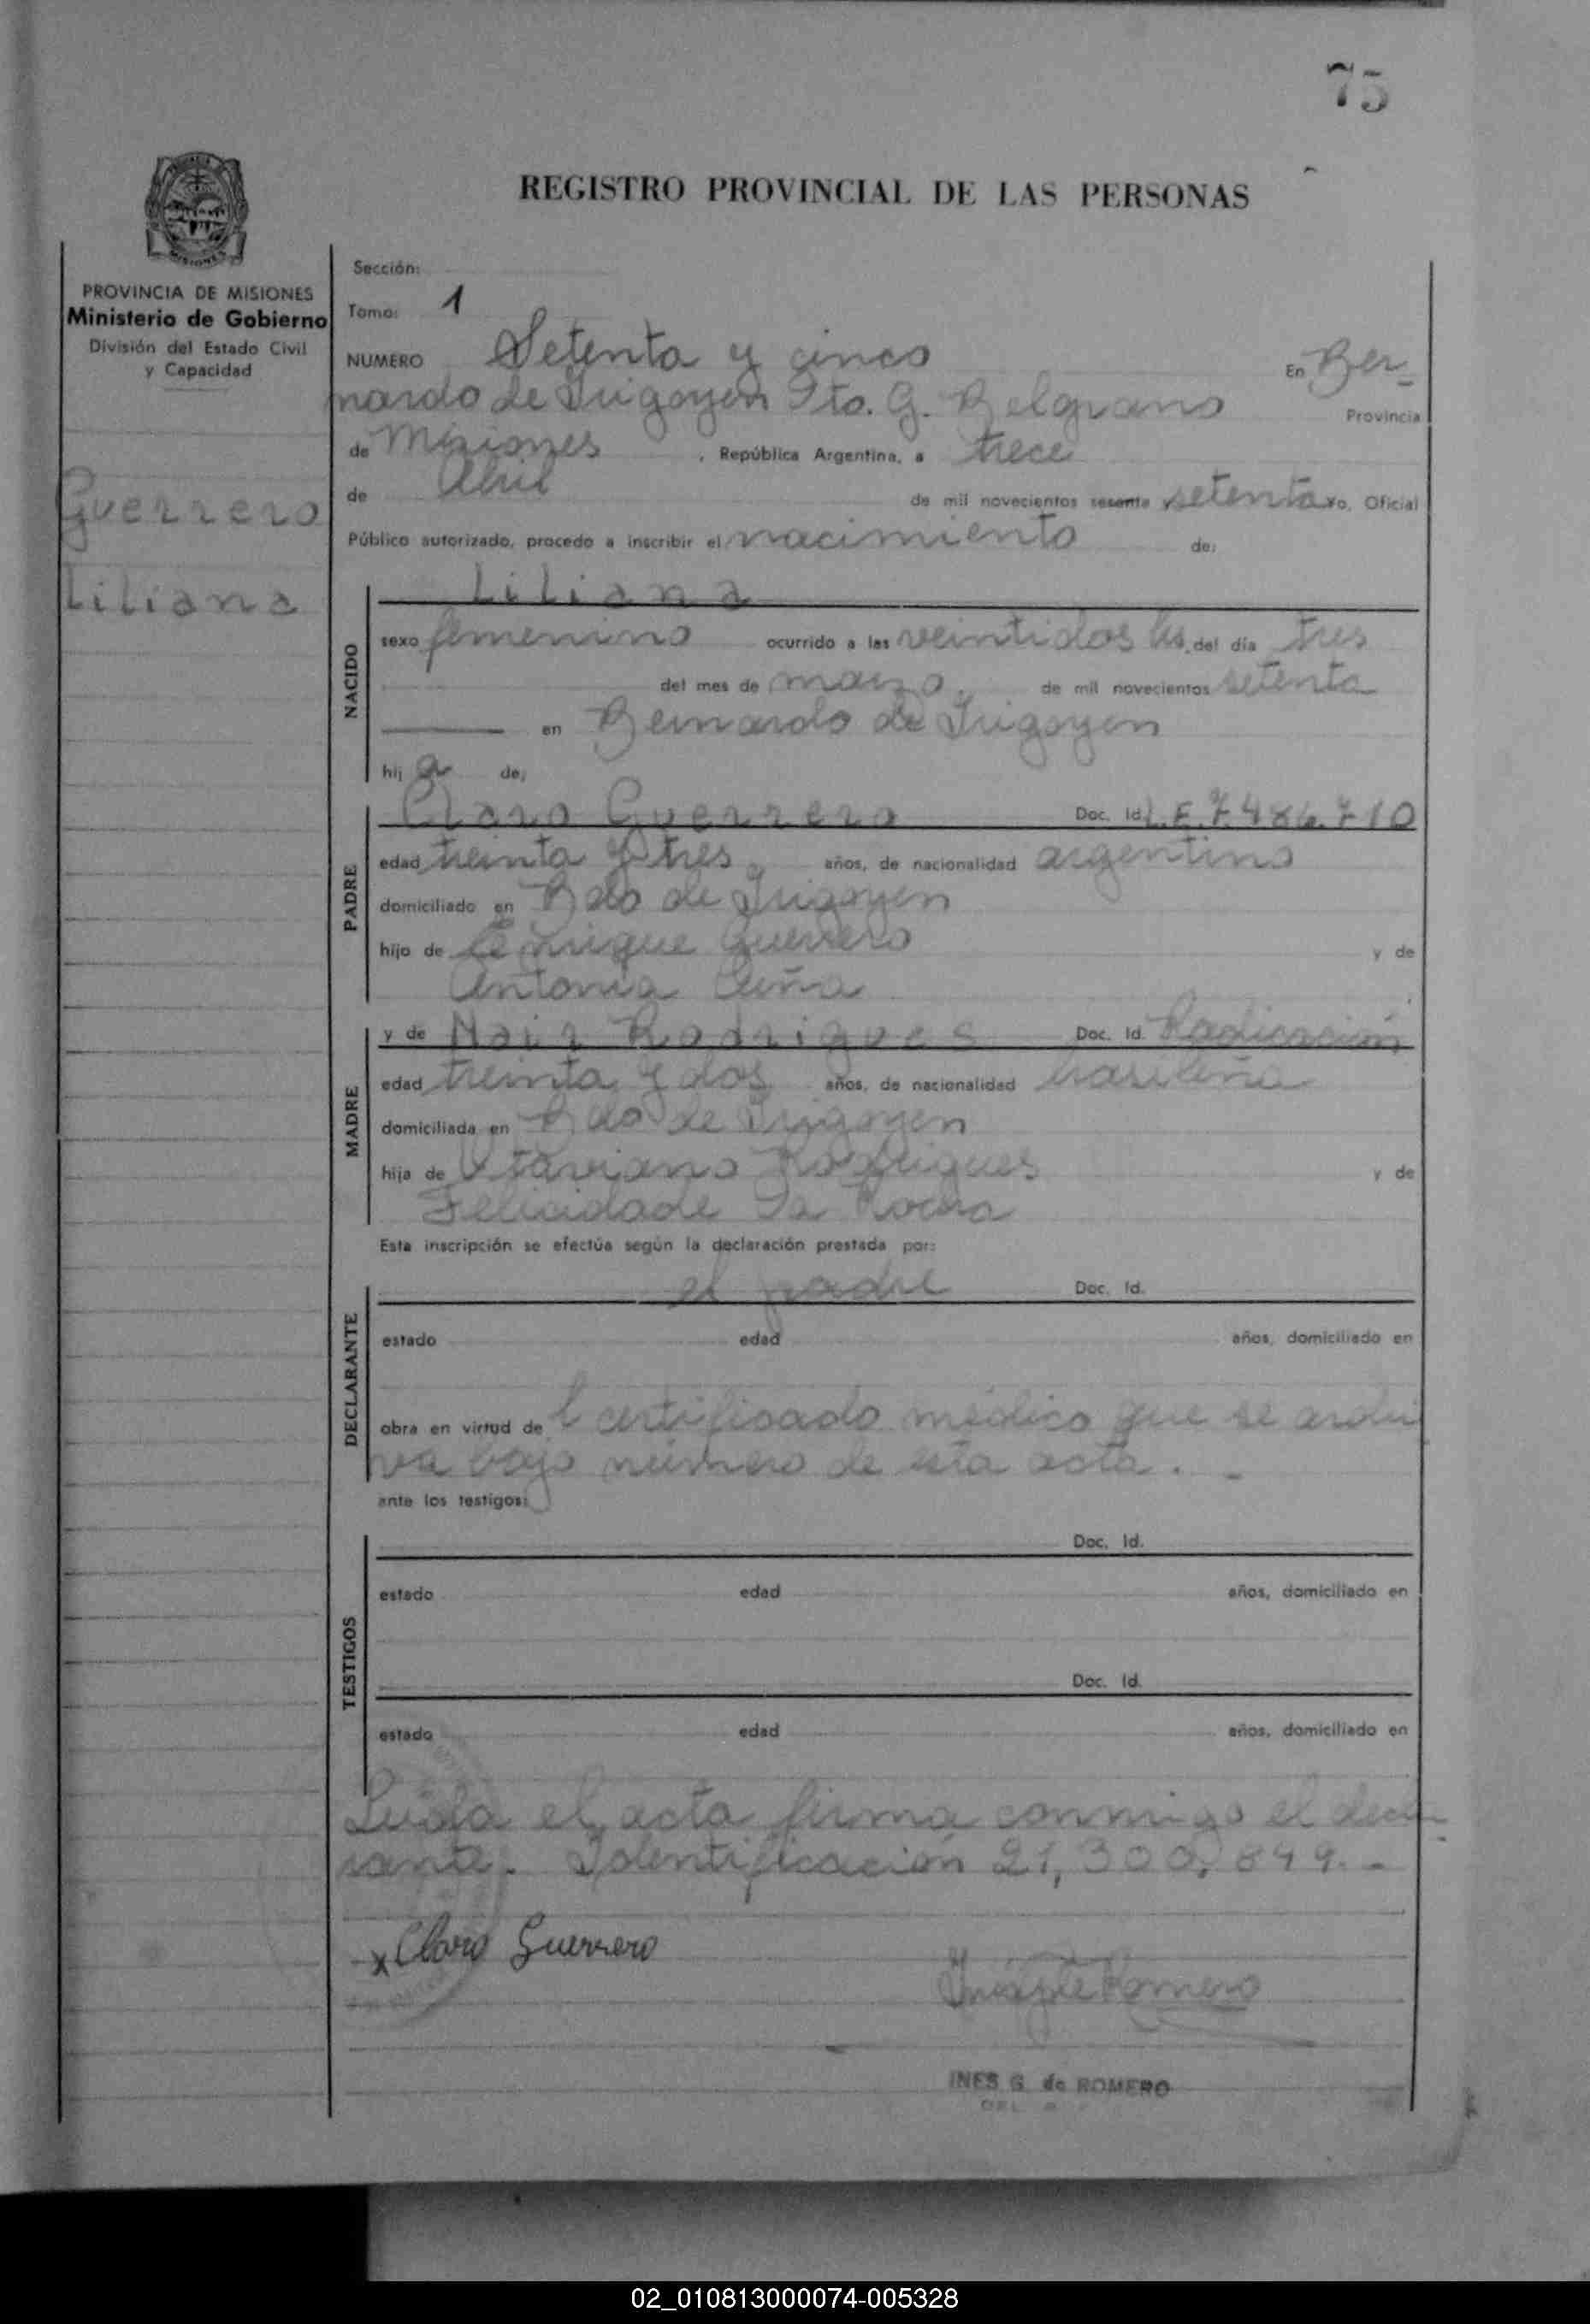 75
REGISTRO PROVINCIAL DE LAS PERSONAS
MISIONES
PROVINCIA DE MISIONES
Ministerio de Gobierno
División del Estado Civil
y Capacidad
Guerrero
Liliana
Sección:
Tomo: 1
NUMERO Setenta y cinco En Ber-
nardo de Irigoyen Dto. G. Belgrano Provincia
de Misiones , República Argentina, a trece
de Abril de mil novecientos sesenta setenta yo, Oficial
Público autorizado, procedo a inscribir el nacimiento de:
NACIDO
Liliana
sexo femenino ocurrido a las veintidos hs. del día tres
del mes de marzo de mil novecientos setenta
en Bernardo de Irigoyen
hij a de:
PADRE
Claro Guerrero Doc. Id. L.E. 7.486.710
edad treinta y tres años, de nacionalidad argentino
domiciliado en Bdo de Irigoyen
hijo de Enrique Guerrero y de
Antonia
MADRE
y de Nair Rodrigues Doc. Id. Radicación
edad treinta y dos años, de nacionalidad brasileña
domiciliada en Bdo de Irigoyen
hija de Otaviano Rodrigues y de
Felicidade Da Rocha
Esta inscripción se efectúa según la declaración prestada por:
DECLARANTE
el padre Doc. Id.
estado edad años, domiciliado en
obra en virtud de l certificado médico que se archi
va bajo número de esta acta. -
ante los testigos:
TESTIGOS
Doc. Id.
estado edad años, domiciliado en
Doc. Id.
estado edad años, domiciliado en
Leida el acta firma conmigo el decla
rante. Identificación 21,300,849. -
x Claro Guerrero
Romero
INES G. de ROMERO
02_010813000074-005328